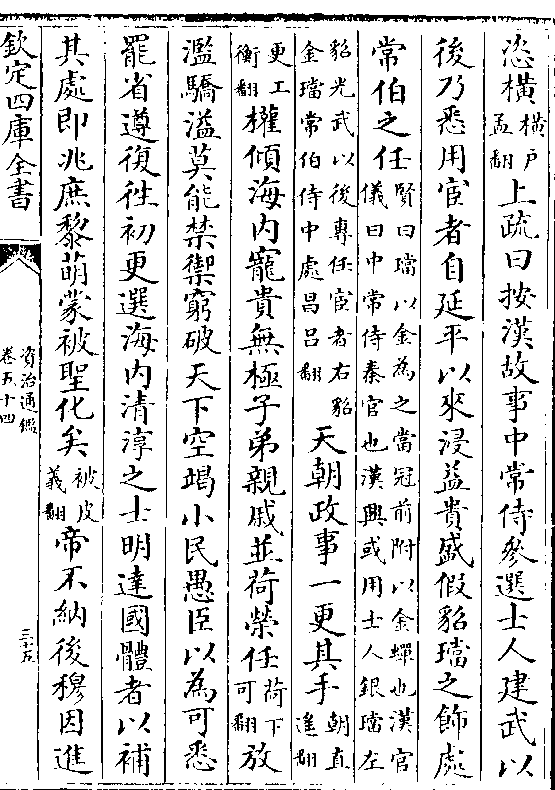 恣橫橫戶孟翻上疏曰按漢故事中常侍參選士人建武以
後乃悉用宦者自延平以來浸益貴盛假貂璫之飾處
常伯之任賢曰璫以金為之當冠前附以金蟬也漢官儀曰中常侍秦官也漢興或用士人銀璫左
貂光武以後專任宦者右貂金璫常伯侍中處昌呂翻天朝政事一更其手朝直遙翻
更工衡翻權傾海內寵貴無極子弟親戚並荷榮任荷下可翻放
濫驕溢莫能禁禦窮破天下空竭小民愚臣以為可悉
罷省遵復徃初更選海內清淳之士明達國體者以補
其處即兆庶黎萌蒙被聖化矣被皮義翻帝不納後穆因進
欽定四庫全書
資治通鑑
卷五十四
三十五